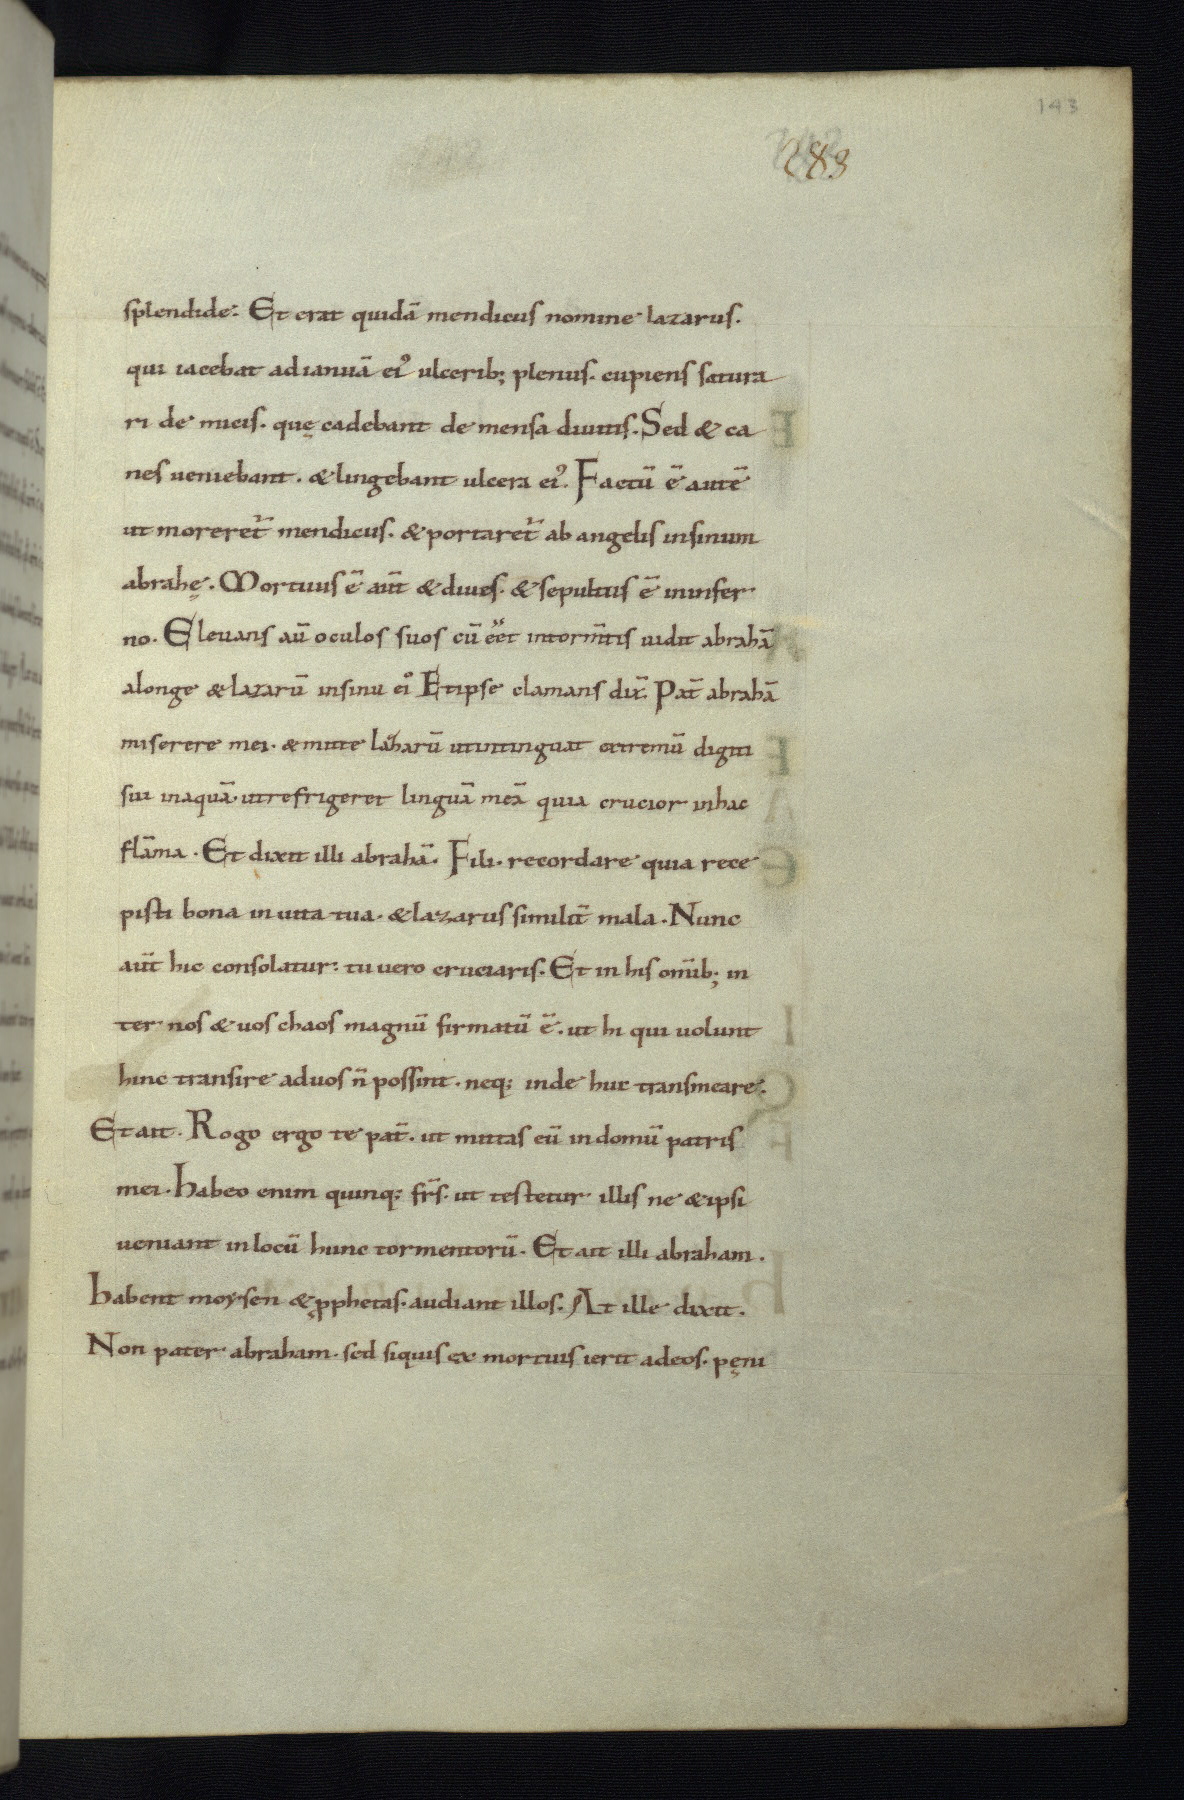 143
283
splendide. Et erat quidā mendicus nomine lazarus.
qui iacebat ad ianuā ei᾿ ulcerib; plenus. cupiens satura
ri de micis. quę cadebant de mensa diuitis. Sed & ca
nes ueniebant. & lingebant ulcera ei᾿. Factū ē autē
ut moreret̄ mendicus. & portaret̄ ab angelis insinum
abrahę. Mortuus ē aūt & diues. & sepultus ē ininfer
no. Eleuans aū oculos suos cū eēt intorm̄tis uidit abrahā
alonge & lazarū insinu ei᾿ Etipse clamans dix̄. Pat̄ abrahā
miserere mei. & mitte lazarū utintinguat extremū digiti
sui inaquā. utrefrigeret linguā meā quia crucior inhac
flāma. Et dixit illi abrahā. Fili. recordare quia rece
pisti bona in uita tua. & lazarus similit̄ mala. Nunc
aūt hic consolatur: tu uero cruciaris. Et in his om̄ib; in
ter nos & uos chaos magnū firmatū ē. ut hi qui uolunt
hinc transire aduos n̄ possint. neq; inde huc transmeare.
Et ait. Rogo ergo te pat̄. ut mittas eū in domū patris
mei. habeo enim quinq; fr̄s. ut testetur illis ne & ipsi
ueniant in locū hunc tormentorū. Et ait illi abraham.
habent moysen & ꝓphetas. audiant illos. At ille dixit.
Non pater abraham. sed siquis ex mortuis ierit adeos. pęni